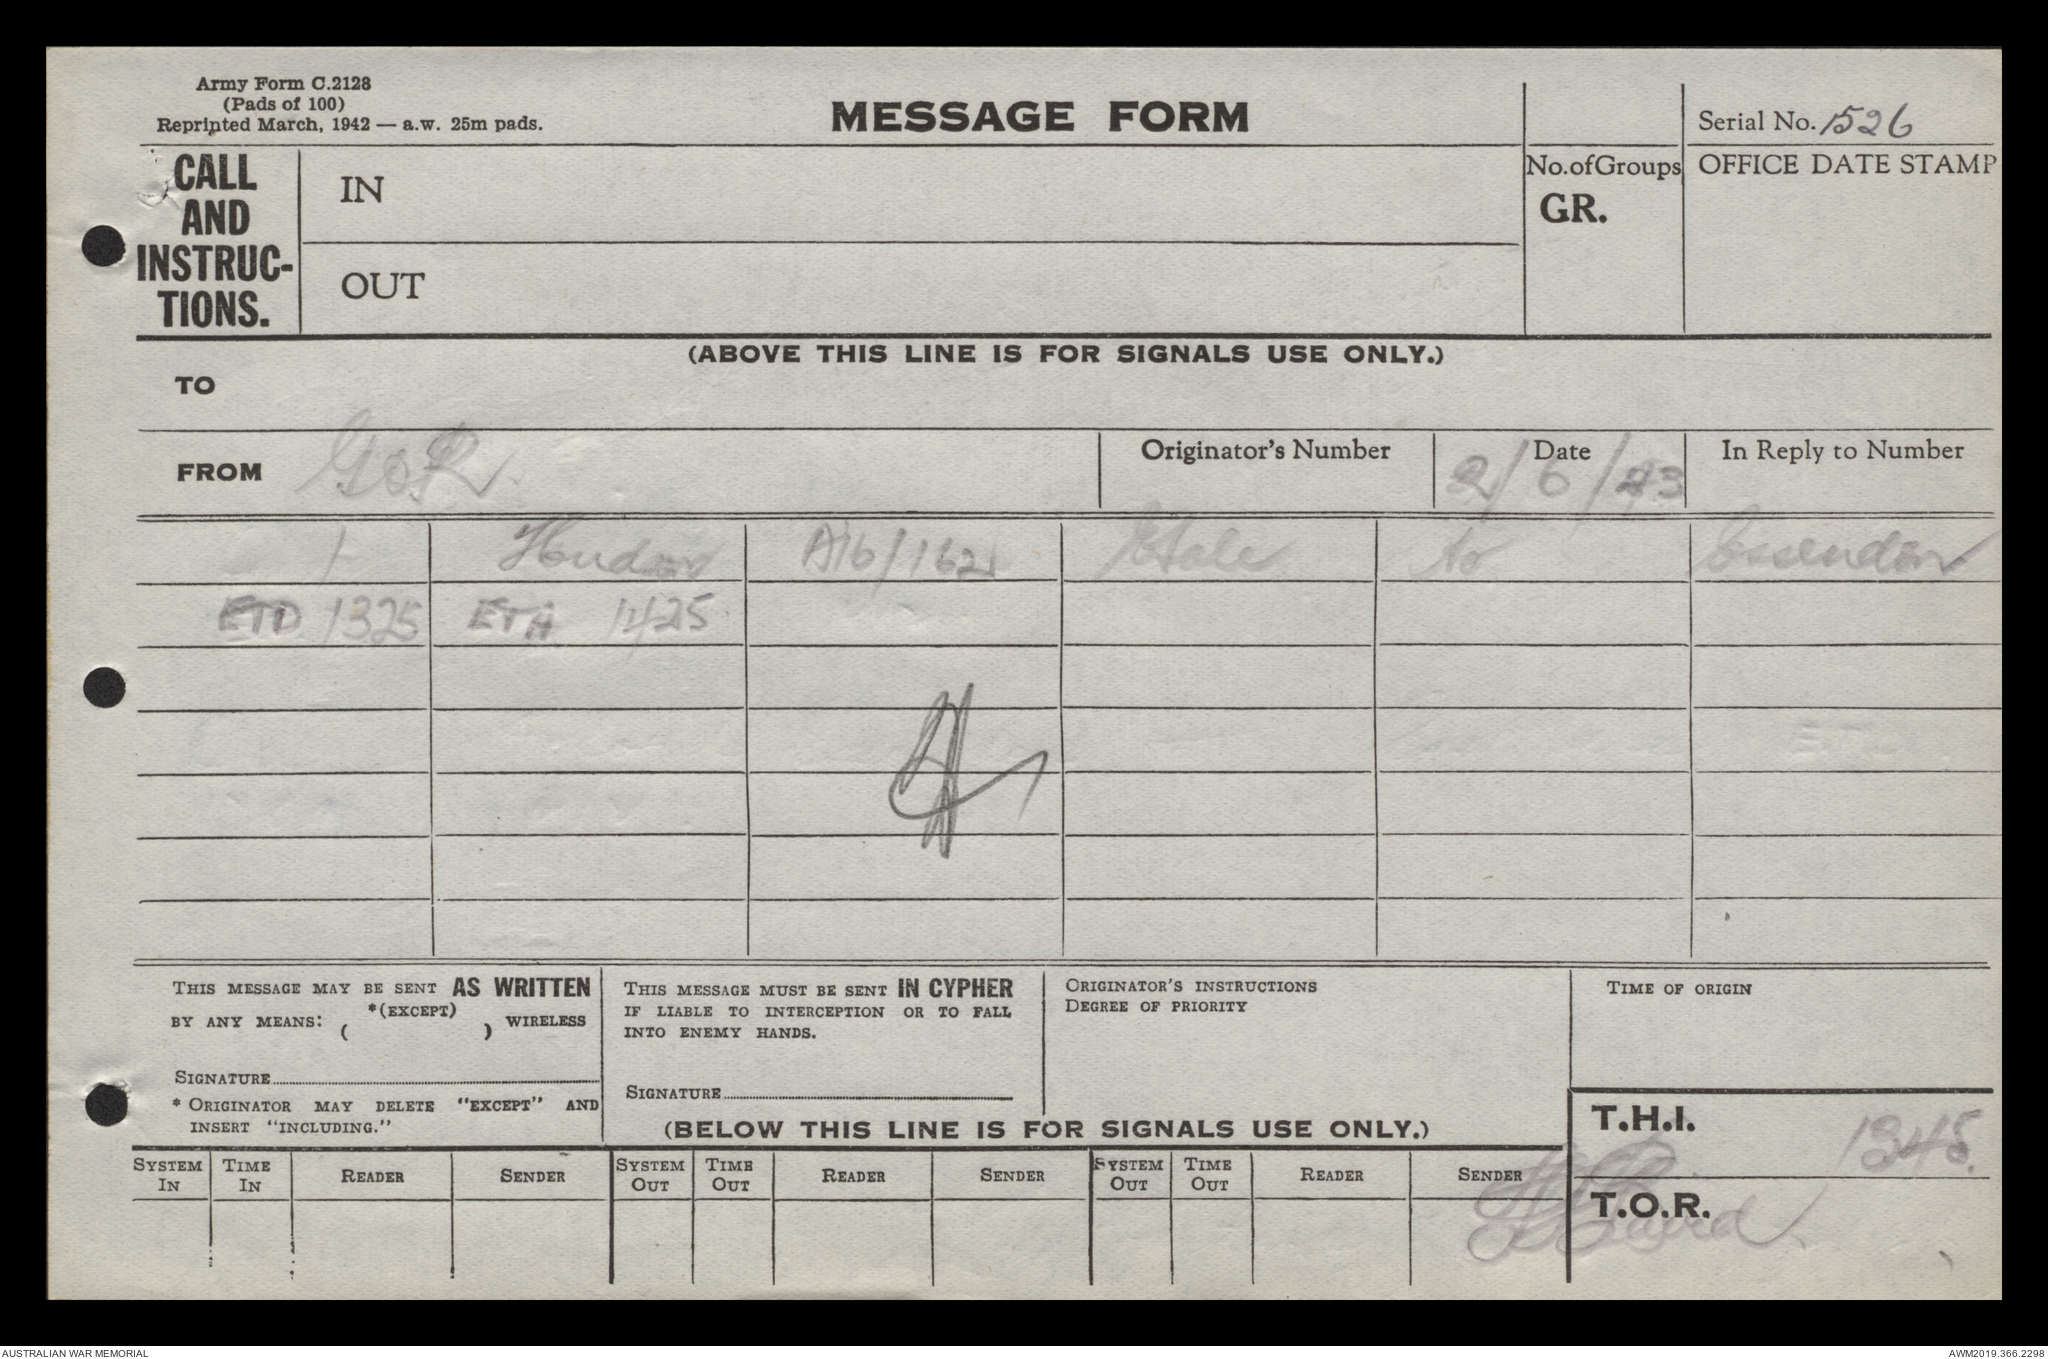 Army Form C.2128
(Pads of 100)
Reprinted March, 1942 — a.w. 25m pads.
MESSAGE FORM
Serial No. 1526
CALL
AND
INSTRUC-
TIONS.
IN
OUT
No. of Groups
GR.
OFFICE DATE STAMP
(ABOVE THIS LINE IS FOR SIGNALS USE ONLY.)
TO
FROM GOR.
Originator's Number
Date
2/6/43
In Reply to Number
1 Hudson A16/162 to Essendon
ETD 1325 ETA 1425
THIS MESSAGE MAY BE SENT AS WRITTEN
BY ANY MEANS: *(EXCEPT) ( ) WIRELESS
SIGNATURE
* ORIGINATOR MAY DELETE "EXCEPT" AND
INSERT "INCLUDING."
THIS MESSAGE MUST BE SENT IN CYPHER
IF LIABLE TO INTERCEPTION OR TO FALL
INTO ENEMY HANDS.
SIGNATURE
ORIGINATOR'S INSTRUCTIONS
DEGREE OF PRIORITY
TIME OF ORIGIN
(BELOW THIS LINE IS FOR SIGNALS USE ONLY.)
T.H.I. 1345.
T.O.R.
SYSTEM IN
TIME IN
READER
SENDER
SYSTEM OUT
TIME OUT
READER
SENDER
SYSTEM OUT
TIME OUT
READER
SENDER
AUSTRALIAN WAR MEMORIAL
AWM2019.366.2298